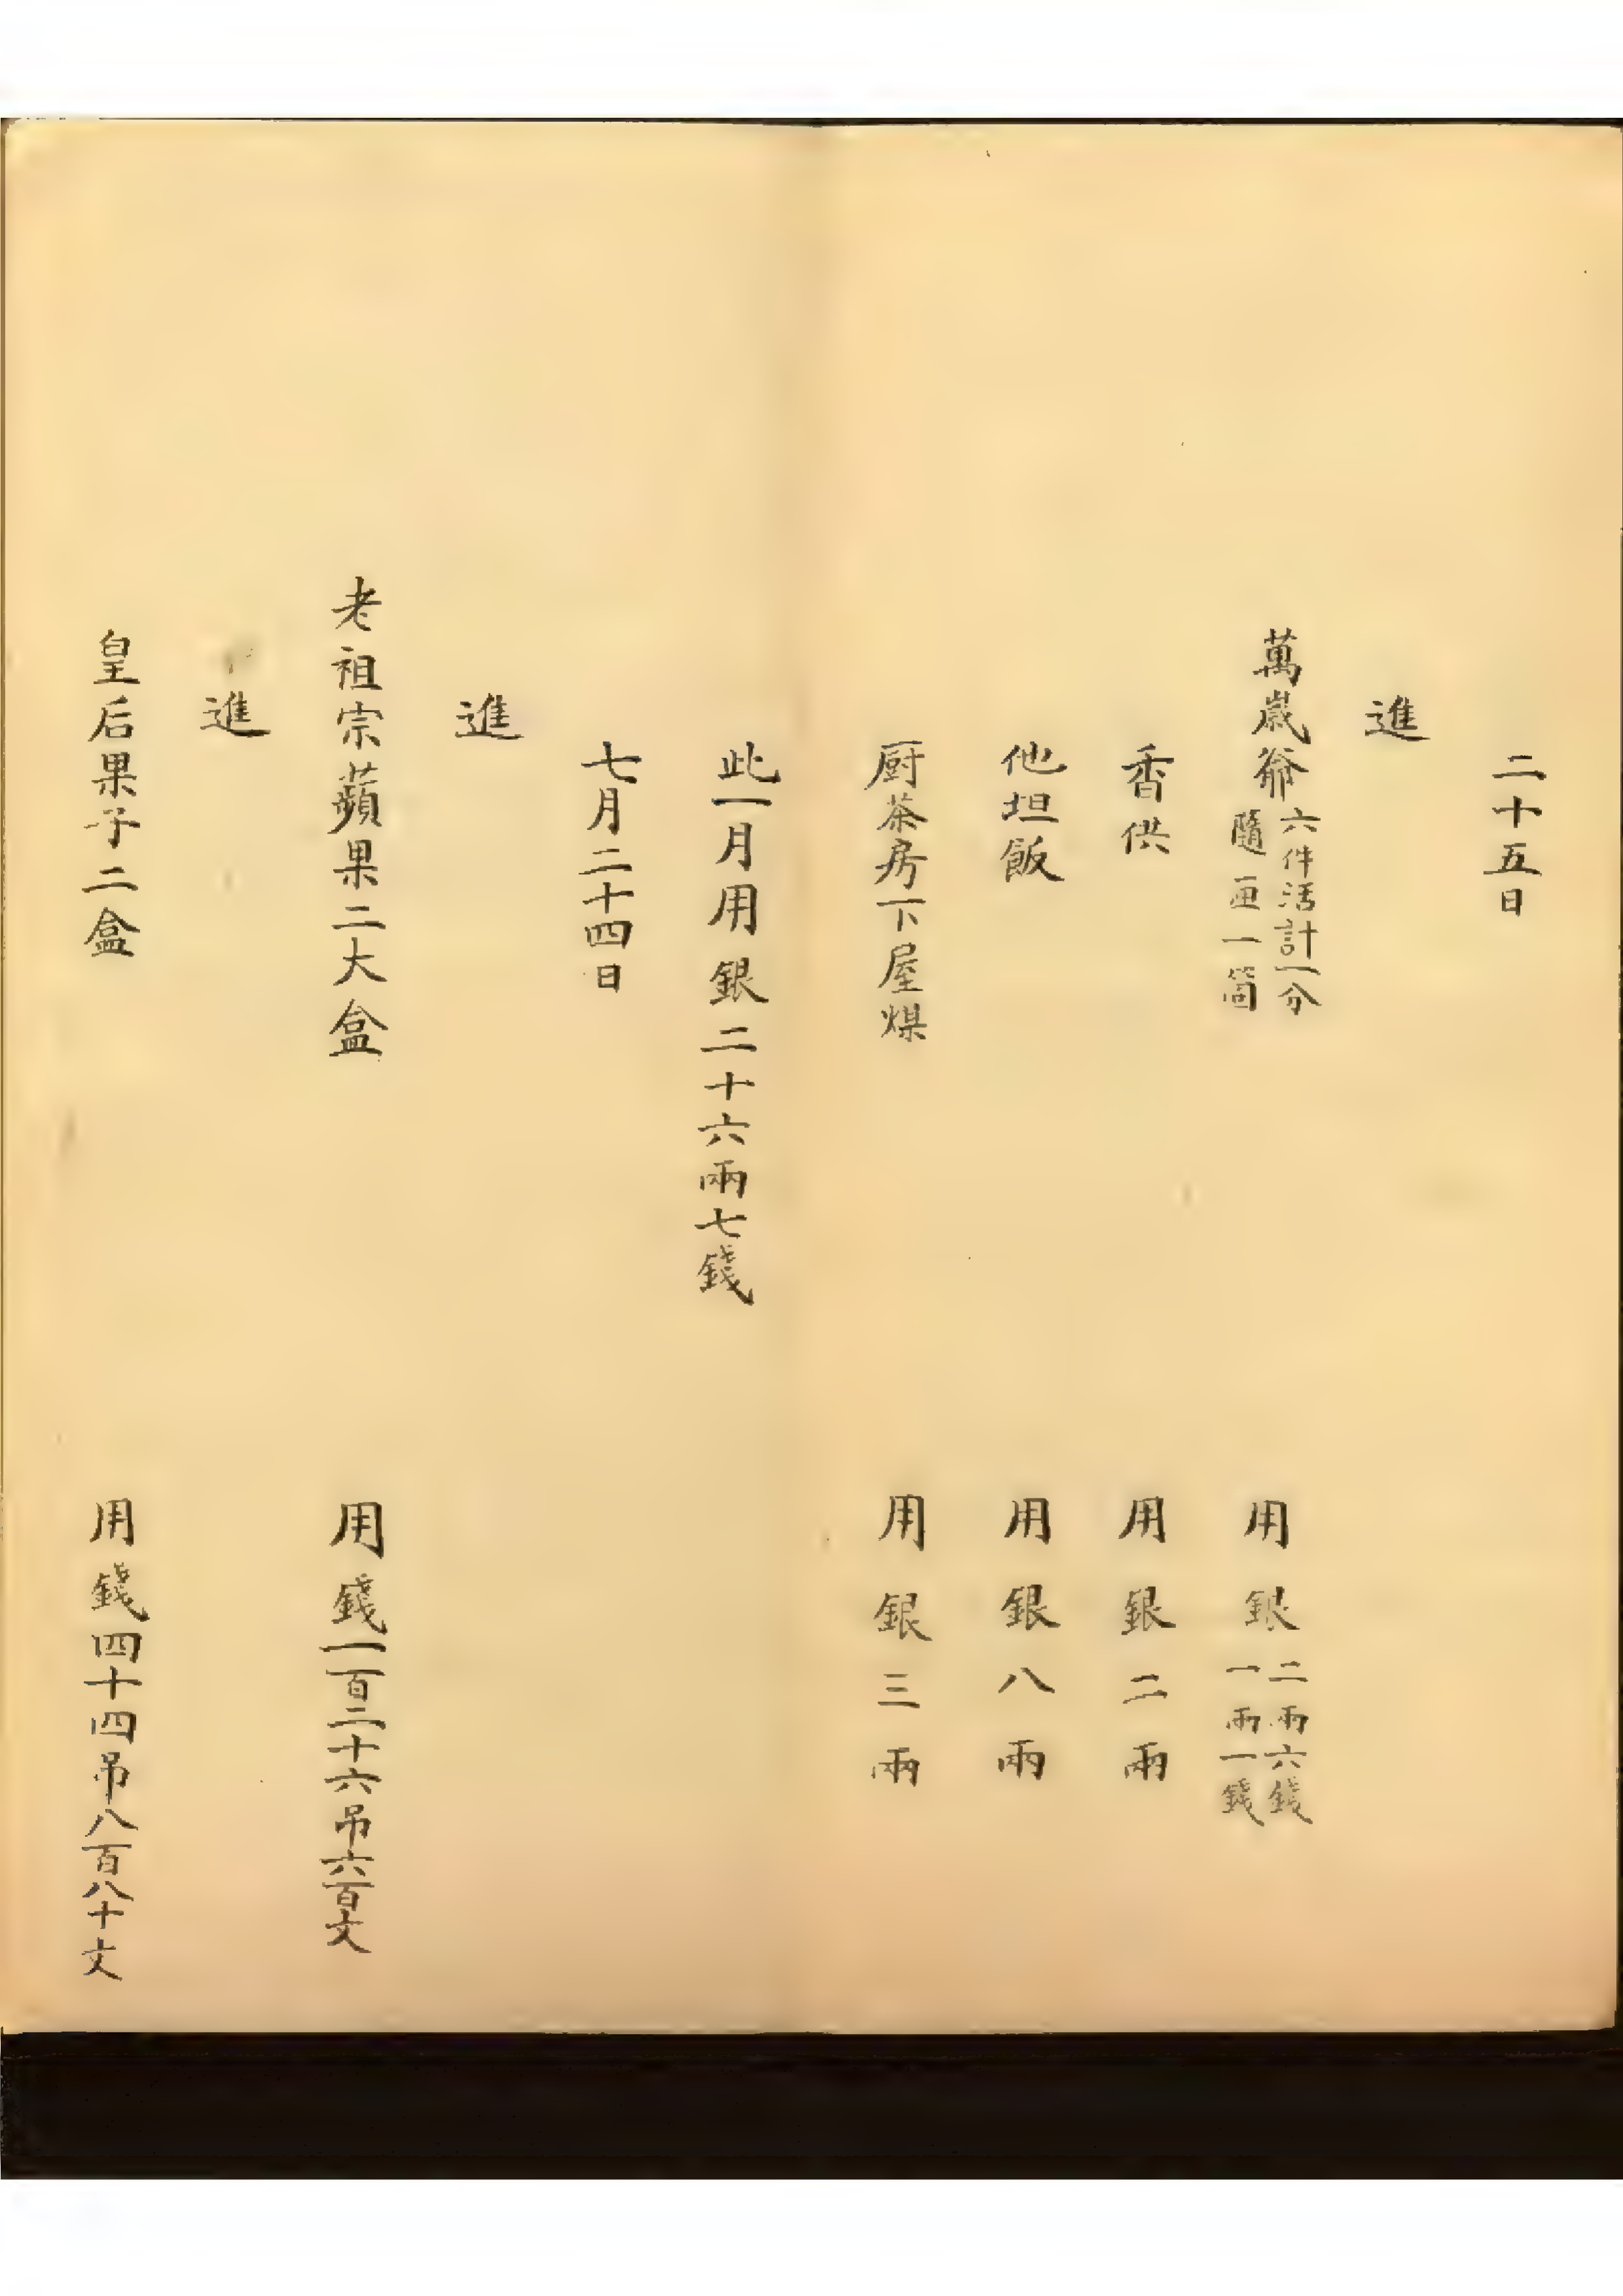 二十五日
進
萬歲爺六件活計一分
隨匣一箇
用銀二兩六錢
一兩一錢
香供
用銀二兩
他坦飯
用銀八兩
厨茶房下屋煤
用銀三兩
此一月用銀二十六兩七錢
七月二十四日
進
老祖宗蘋果二大盒
用錢一百二十六吊六百文
進
皇后果子二盒
用錢四十四吊八百八十文